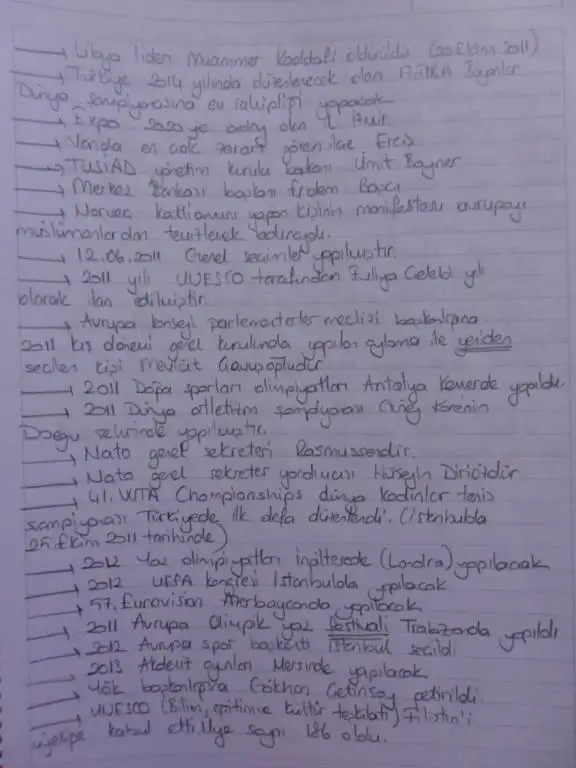 → Libya lideri Muammer Kaddafi öldürüldü (20 Ekim 2011)
→ Türkiye 2014 yılında düzenlenecek olan FİBA Bayanlar
Dünya şampiyonasına ev sahipliği yapacak
→ Expo 2020 ye aday olan il İzmir
→ Vanda en çok zarar gören ilçe Erciş
→ TUSİAD yönetim kurulu başkanı Ümit Boyner
→ Merkez Bankası başkanı Erdem Başçı
→ Norveç katliamını yapan kişinin manifestosu avrupayı
müslümanlardan temizlemek adınaydı.
→ 12.06.2011 Genel seçimler yapılmıştır.
→ 2011 yılı UNESCO tarafından Evliya Çelebi yılı
olarak ilan edilmiştir.
→ Avrupa konseyi parlementerler meclisi başkanlığına
2011 kış dönemi genel kurulunda yapılan oylama ile yeniden
seçilen kişi Mevlüt Çavuşoğludur
→ 2011 Doğa sporları olimpiyatları Antalya Kemerde yapıldı.
→ 2011 Dünya atletizm şampiyonası Güney Korenin
Daegu şehrinde yapılmıştır.
→ Nato genel sekreteri Rasmussendir.
→ Nato genel sekreter yardımcısı Hüseyin Diriözdür
→ 41. WTA Championships dünya kadınlar tenis
şampiyonası Türkiyede ilk defa düzenlendi. (İstanbulda
25 Ekim 2011 tarihinde)
→ 2012 Yaz olimpiyatları ingilterede (Londra) yapılacak
→ 2012 UEFA kongresi İstanbulda yapılacak
→ 57. Eurovision Azerbaycanda yapılacak
→ 2011 Avrupa Olimpik yaz festivali Trabzonda yapıldı
→ 2012 Avrupa spor başkenti İstanbul seçildi
→ 2013 Akdeniz oyunları Mersinde yapılacak
→ Yök başkanlığına Gökhan Çetinsaya getirildi
→ UNESCO (Bilim, eğitim ve kültür teşkilatı) Filistin'i
üyeliğe kabul etti, Üye sayısı 186 oldu.